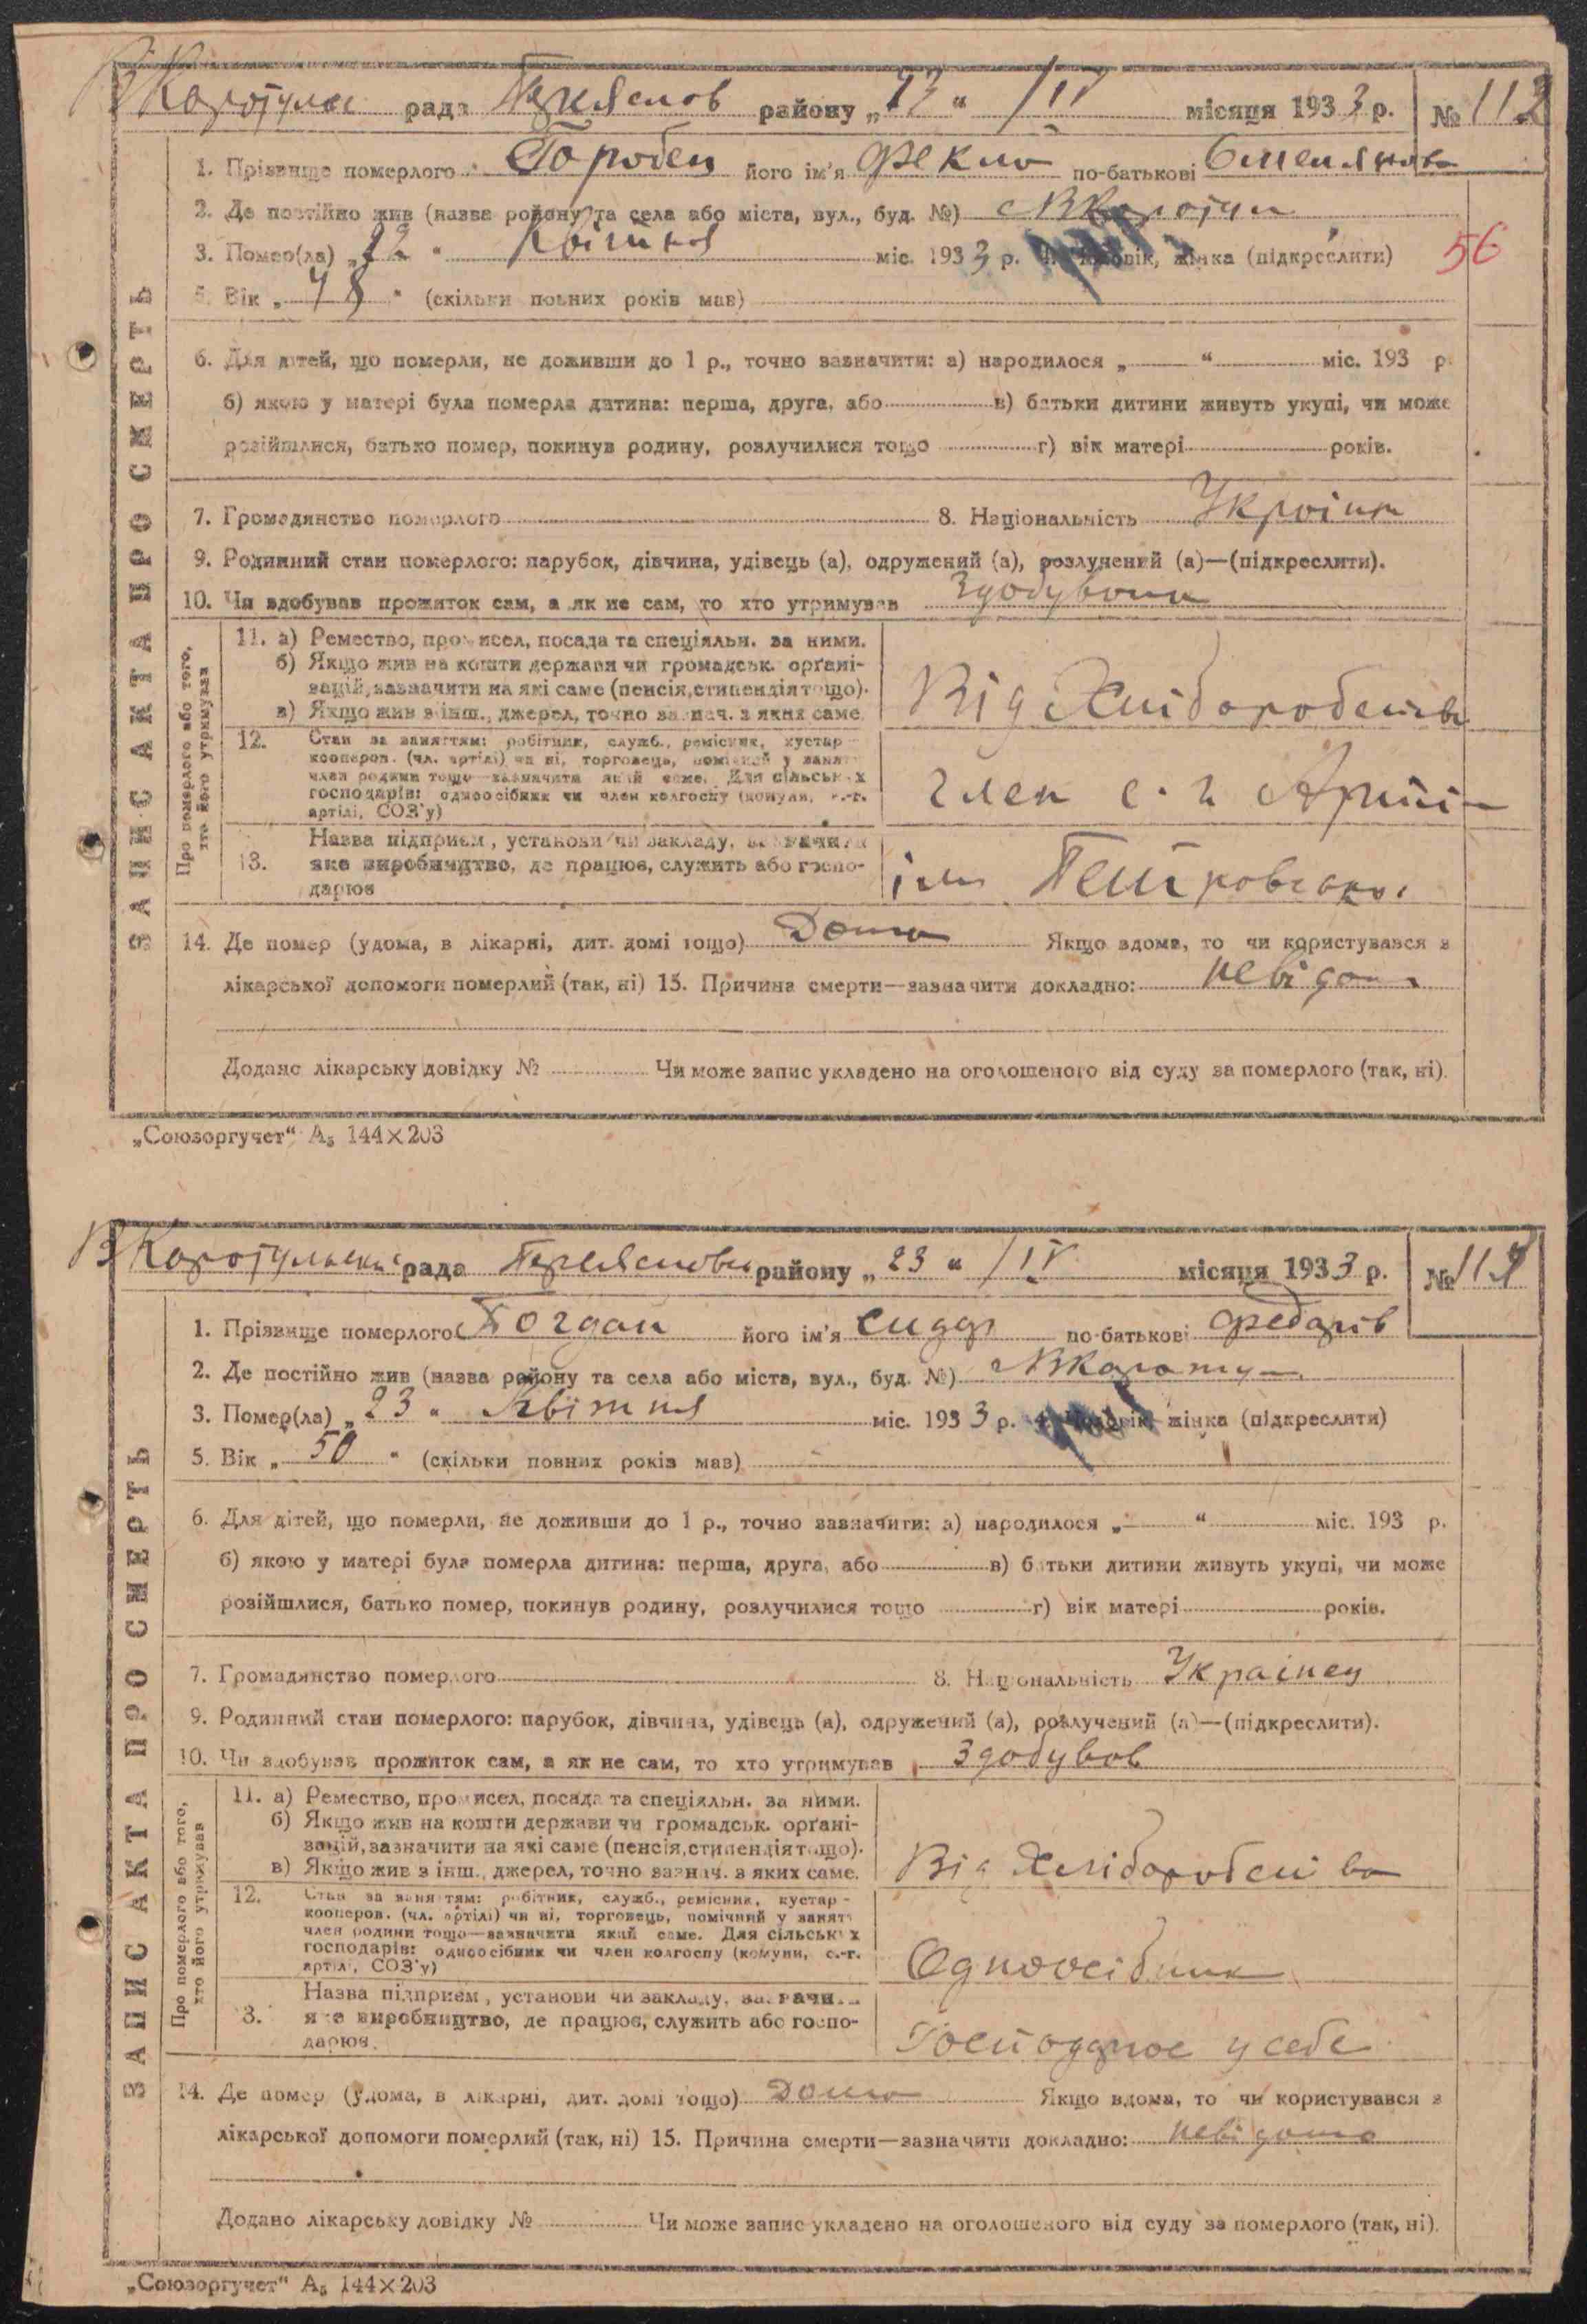 ЗАПИС АКТА ПРО СМЕРТЬ
рада району „ “ /IV місяця 1933 р. № 113
1. Прізвище померлого його ім'я Фекла по-батькові Омелянова
2. Де постійно жив (назва району та села або міста, вул., буд. №)
3. Помер(ла) „22 “ Квітня міс. 1933 р. жінка (підкреслити)
56
5. Вік „ 48 “ (скільки повних років мав)
6. Для дітей, що померли, не доживши до 1 р., точно зазначити: а) народилося „ “ міс. 193 р.
б) якою у матері була померла дитина: перша, друга, або в) батьки дитини живуть укупі, чи може
розійшлися, батько помер, покинув родину, розлучилися тощо г) вік матері років.
7. Громадянство померлого 8. Національність
9. Родинний стан померлого: парубок, дівчина, удівець (а), одружений (а), розлучений (а)—(підкреслити).
10. Чи здобував прожиток сам, а як не сам, то хто утримував
Про померлого або того, хто його утримував
11. а) Ремество, промисел, посада та спеціяльн. за ними.
б) Якщо жив на кошти держави чи громадськ. орґані-
зацій, зазначити на які саме (пенсія, стипендія тощо).
в) Якщо жив з інш., джерел, точно зазнач. з яких саме.
Від Хліборобства
12. Стан за заняттям: робітник, служб., ремісник, кустар-
кооперов. (чл. артілі) чи ні, торговець, помічний у занят.
член родини тощо—зазначити який саме. Для сільських
господарів: одноосібник чи член колгоспу (комуни, с.-г.
артілі, СОЗ'у)
член с. г Артіли
13. Назва підприєм., установи чи закладу, зазначити
яке виробництво, де працює, служить або госпо-
дарює
ім Петровського
14. Де помер (удома, в лікарні, дит. домі тощо) Дома Якщо вдома, то чи користувався з
лікарської допомоги померлий (так, ні) 15. Причина смерти—зазначити докладно: невідома
Додано лікарську довідку № Чи може запис укладено на оголошеного від суду за померлого (так, ні).
„Союзоргучет“ А₅ 144×203
ЗАПИС АКТА ПРО СМЕРТЬ
рада району „ 23 “ /IV місяця 1933 р. №
1. Прізвище померлого Богдан його ім'я Сидор по-батькові Федорів
2. Де постійно жив (назва району та села або міста, вул., буд. №)
3. Помер(ла) „ 23 “ Квітня міс. 1933 р. жінка (підкреслити)
5. Вік „ 50 “ (скільки повних років мав)
6. Для дітей, що померли, не доживши до 1 р., точно зазначити: а) народилося „ “ міс. 193 р.
б) якою у матері була померла дитина: перша, друга, або в) батьки дитини живуть укупі, чи може
розійшлися, батько помер, покинув родину, розлучилися тощо г) вік матері років.
7. Громадянство померлого 8. Національність Українец
9. Родинний стан померлого: парубок, дівчина, удівець (а), одружений (а), розлучений (а)—(підкреслити).
10. Чи здобував прожиток сам, а як не сам, то хто утримував Здобував
Про померлого або того, хто його утримував
11. а) Ремество, промисел, посада та спеціяльн. за ними.
б) Якщо жив на кошти держави чи громадськ. орґані-
зацій, зазначити на які саме (пенсія, стипендія тощо).
в) Якщо жив з інш., джерел, точно зазнач. з яких саме.
Від Хліборобства
12. Стан за заняттям: робітник, служб., ремісник, кустар-
кооперов. (чл. артілі) чи ні, торговець, помічний у занят.
член родини тощо—зазначити який саме. Для сільських
господарів: одноосібник чи член колгоспу (комуни, с.-г.
артілі, СОЗ'у)
Одноосібник
13. Назва підприєм., установи чи закладу, зазначити
яке виробництво, де працює, служить або госпо-
дарює.
Господарює у себе
14. Де помер (удома, в лікарні, дит. домі тощо) Дома Якщо вдома, то чи користувався з
лікарської допомоги померлий (так, ні) 15. Причина смерти—зазначити докладно: невідома
Додано лікарську довідку № Чи може запис укладено на оголошеного від суду за померлого (так, ні).
„Союзоргучет“ А₅ 144×203